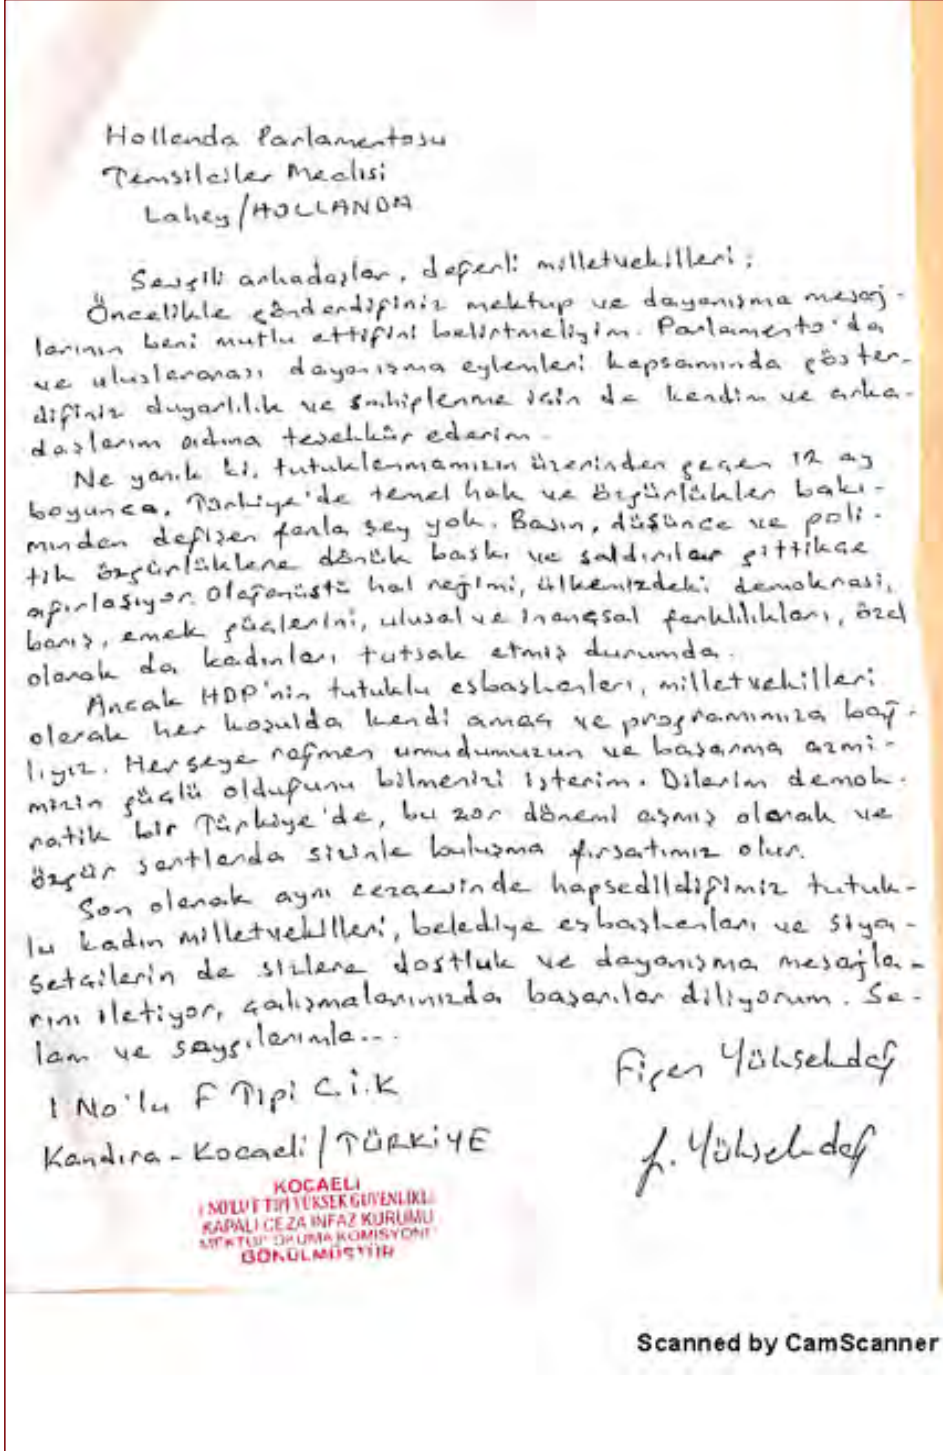 Hollanda Parlamentosu
Temsilciler Meclisi
Lahey/HOLLANDA
Sevgili arkadaşlar, değerli milletvekilleri;
Öncelikle gönderdiğiniz mektup ve dayanışma mesaj-
larının beni mutlu ettiğini belirtmeliyim. Parlamento'da
ve uluslararası dayanışma eylemleri kapsamında göster-
diğiniz duyarlılık ve sahiplenme için de kendim ve arka-
daşlarım adına teşekkür ederim.
Ne yazık ki, tutuklanmamızın üzerinden geçen 12 ay
boyunca, Türkiye'de temel hak ve özgürlükler bakı-
mından değişen fazla şey yok. Basın, düşünce ve poli-
tik özgürlüklere dönük baskı ve saldırılar gittikçe
ağırlaşıyor. Olağanüstü hal rejimi, ülkemizdeki demokrasi,
barış, emek güçlerini, ulusal ve inançsal farklılıkları, özel
olarak da kadınları tutsak etmiş durumda.
Ancak HDP'nin tutuklu eşbaşkanları, milletvekilleri
olarak her koşulda kendi amaç ve programımıza bağ-
lıyız. Herşeye rağmen umudumuzun ve başarma azmi-
mizin güçlü olduğunu bilmenizi isterim. Dilerim demok-
ratik bir Türkiye'de, bu zor dönemi aşmış olarak ve
özgür şartlarda sizinle buluşma fırsatımız olur.
Son olarak aynı cezaevinde hapsedildiğimiz tutuk-
lu kadın milletvekilleri, belediye eşbaşkanları ve siya-
setçilerin de sizlere dostluk ve dayanışma mesajla-
rını iletiyor, çalışmalarınızda başarılar diliyorum. Se-
lam ve saygılarımla...
Figen Yüksekdağ
1 No'lu F Tipi C.İ.K
Kandıra-Kocaeli/TÜRKİYE
f. Yüksekdağ
KOCAELİ
1 NOLU F TİPİ YÜKSEK GÜVENLİKLİ
KAPALI CEZA İNFAZ KURUMU
MEKTUP OKUMA KOMİSYONU
GÖRÜLMÜŞTÜR
Scanned by CamScanner